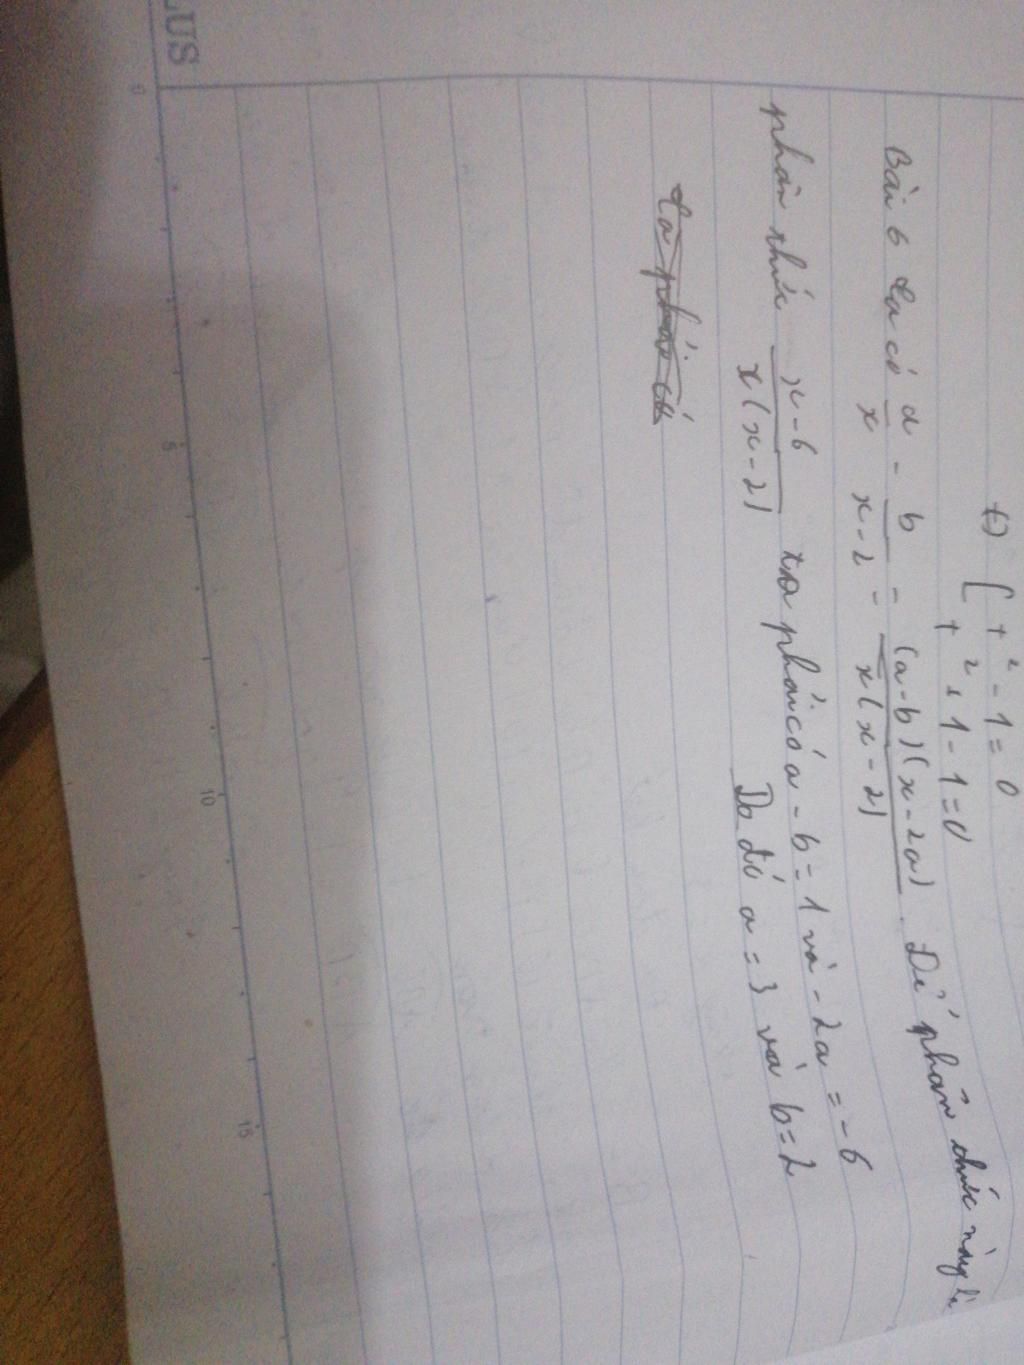 (-) [ t² - 1 = 0
t² + 1 - 1 = 0
Bài 6 ta có a/x - b/(x-2) = (a-b)(x-2a)/x(x-2). Để phân thức này là
phân thức x-6/x(x-2) ta phải có a - b = 1 và - 2a = -6
Do đó a = 3 và b = 2
Ta phải có
LUS
0 5 10 15